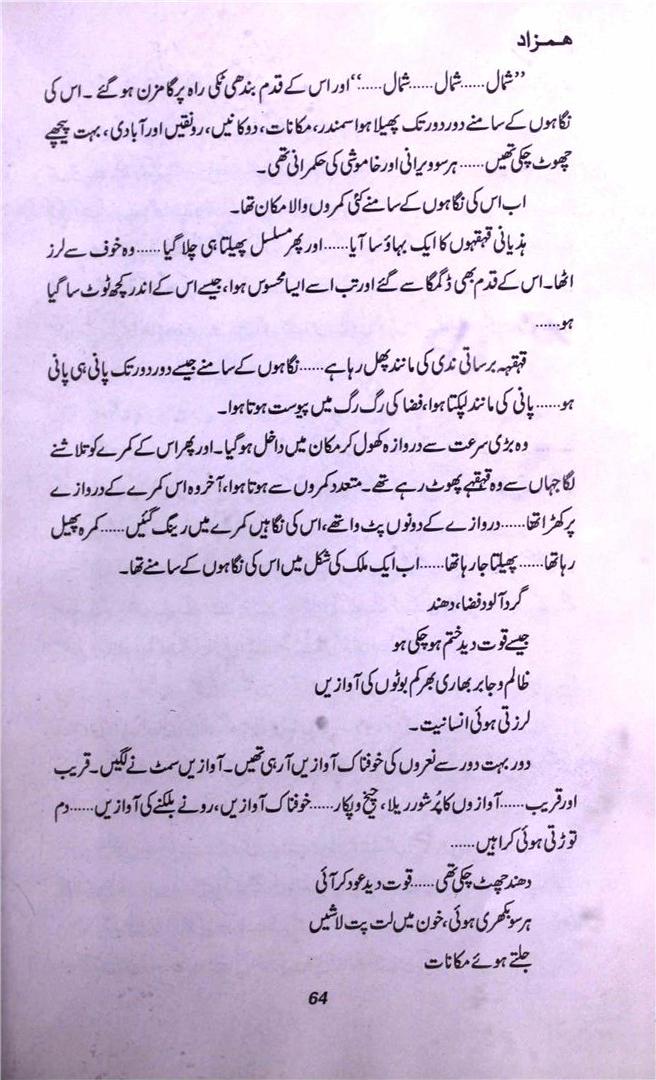 ہمزاد
”شمال......شمال......شمال......“ اور اس کے قدم بندھی ٹکی راہ پر گامزن ہوگئے ۔ اس کی
نگاہوں کے سامنے دور دور تک پھیلا ہوا سمندر، مکانات، دوکانیں، رونقیں اور آبادی، بہت پیچھے
چھوٹ چکی تھیں......ہر سو ویرانی اور خاموشی کی حکمرانی تھی۔
اب اس کی نگاہوں کے سامنے کئی کمروں والا مکان تھا۔
ہذیانی قہقہوں کا ایک بہاؤ سا آیا......اور پھر مسلسل پھیلتا ہی چلا گیا......وہ خوف سے لرز
اٹھا۔ اس کے قدم بھی ڈگمگا سے گئے اور تب اسے ایسا محسوس ہوا، جیسے اس کے اندر کچھ ٹوٹ سا گیا
ہو......
قہقہہ برساتی ندی کی مانند پھل رہا ہے......نگاہوں کے سامنے جیسے دور دور تک پانی ہی پانی
ہو......پانی کی مانند لپکتا ہوا، فضا کی رگ رگ میں پیوست ہوتا ہوا۔
وہ بڑی سرعت سے دروازہ کھول کر مکان میں داخل ہوگیا۔ اور پھر اس کے کمرے کو تلاشنے
لگا جہاں سے وہ قہقہے پھوٹ رہے تھے۔ متعدد کمروں سے ہوتا ہوا، آخر وہ اس کمرے کے دروازے
پر کھڑا تھا......دروازے کے دونوں پٹ وا تھے، اس کی نگاہیں کمرے میں رینگ گئیں......کمرہ پھیل
رہا تھا......پھیلتا جا رہا تھا......اب ایک ملک کی شکل میں اس کی نگاہوں کے سامنے تھا۔
گرد آلود فضا، دھند
جیسے قوت دید ختم ہوچکی ہو
ظالم و جابر بھاری بھرکم بوٹوں کی آوازیں
لرزتی ہوئی انسانیت۔
دور بہت دور سے نعروں کی خوفناک آوازیں آرہی تھیں۔ آوازیں سمٹ نے لگیں۔ قریب
اور قریب......آوازوں کا پُر شور ریلا، چیخ و پکار......خوفناک آوازیں، رونے بلکنے کی آوازیں......دم
توڑتی ہوئی کراہیں......
دھند چھٹ چکی تھی......قوت دید عود کر آئی
ہر سو بکھری ہوئی، خون میں لت پت لاشیں
جلتے ہوئے مکانات
64